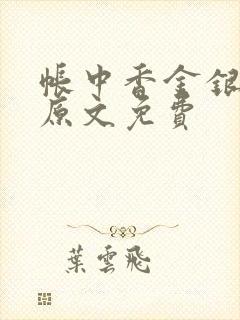 帳中香金銀
原文免費
葉雲飛